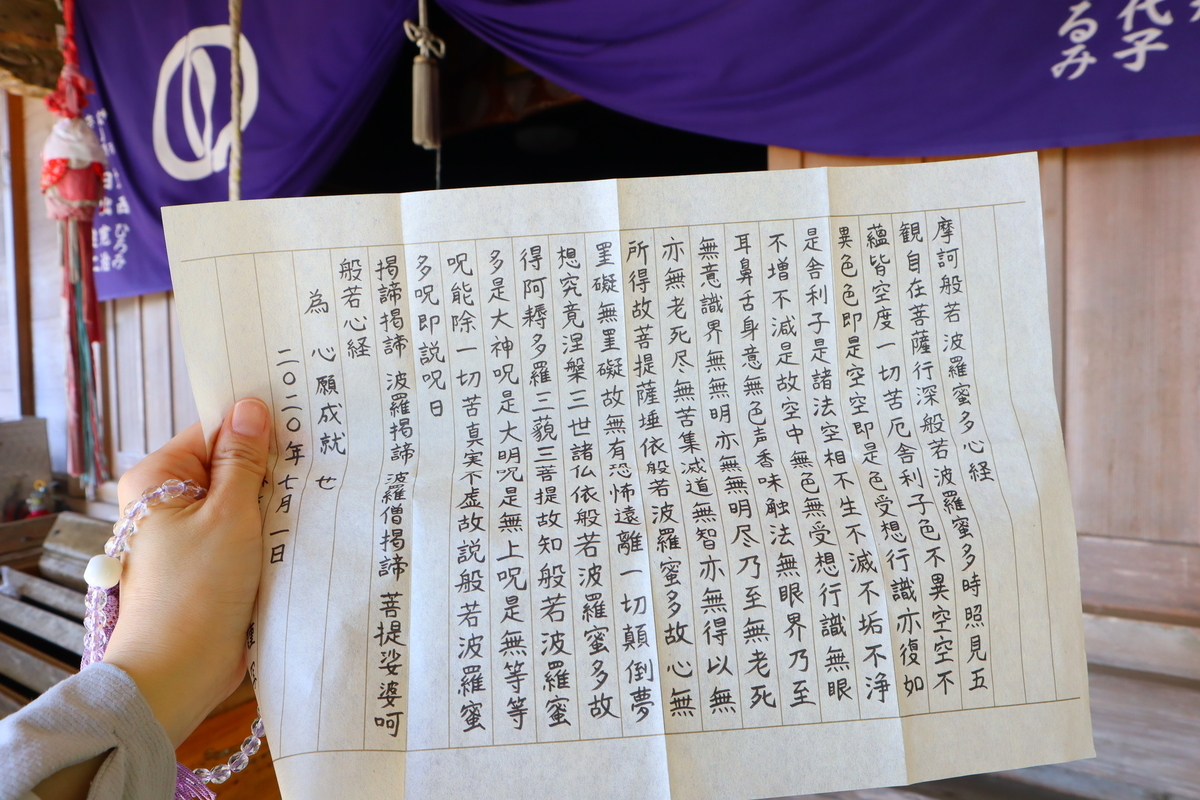 代子
るみ
摩訶般若波羅蜜多心経
観自在菩薩行深般若波羅蜜多時照見五
蘊皆空度一切苦厄舎利子色不異空空不
異色色即是空空即是色受想行識亦復如
是舎利子是諸法空相不生不滅不垢不浄
不増不減是故空中無色無受想行識無眼
耳鼻舌身意無色声香味触法無眼界乃至
無意識界無無明亦無無明尽乃至無老死
亦無老死尽無苦集滅道無智亦無得以無
所得故菩提薩埵依般若波羅蜜多故心無
罣礙無罣礙故無有恐怖遠離一切顛倒夢
想究竟涅槃三世諸仏依般若波羅蜜多故
得阿耨多羅三藐三菩提故知般若波羅蜜
多是大神呪是大明呪是無上呪是無等等
呪能除一切苦真実不虚故説般若波羅蜜
多呪即説呪曰
揭諦揭諦 波羅揭諦 波羅僧揭諦 菩提娑婆呵
般若心経
為 心願成就 也
二〇二〇年七月一日
ひろみ